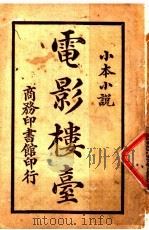 小本小說
電影樓臺
商務印書館印行